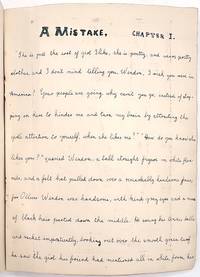 A MISTAKE. CHAPTER I.
"She is just the sort of girl I like, she is pretty, and wears pretty
clothes and I don't mind telling you, Werdon, I wish you were in
America! Your people are going why can't you go instead of stop-
ping on here to hinder me and turn my brain by attending the
girls attention to yourself, when she likes me?" "How do you know she
likes you?" queried Werdon, a tall straight figure in white flan-
nels, and a felt hat pulled down over a remarkably handsome face,
for Oliver Werdon was handsome, with bright grey eyes and a mass
of black hair parted down the middle. He swung his tennis balls
and racket impatiently, looking out over the smooth green lawn
he saw the girl his friend had mentioned all in white, from her